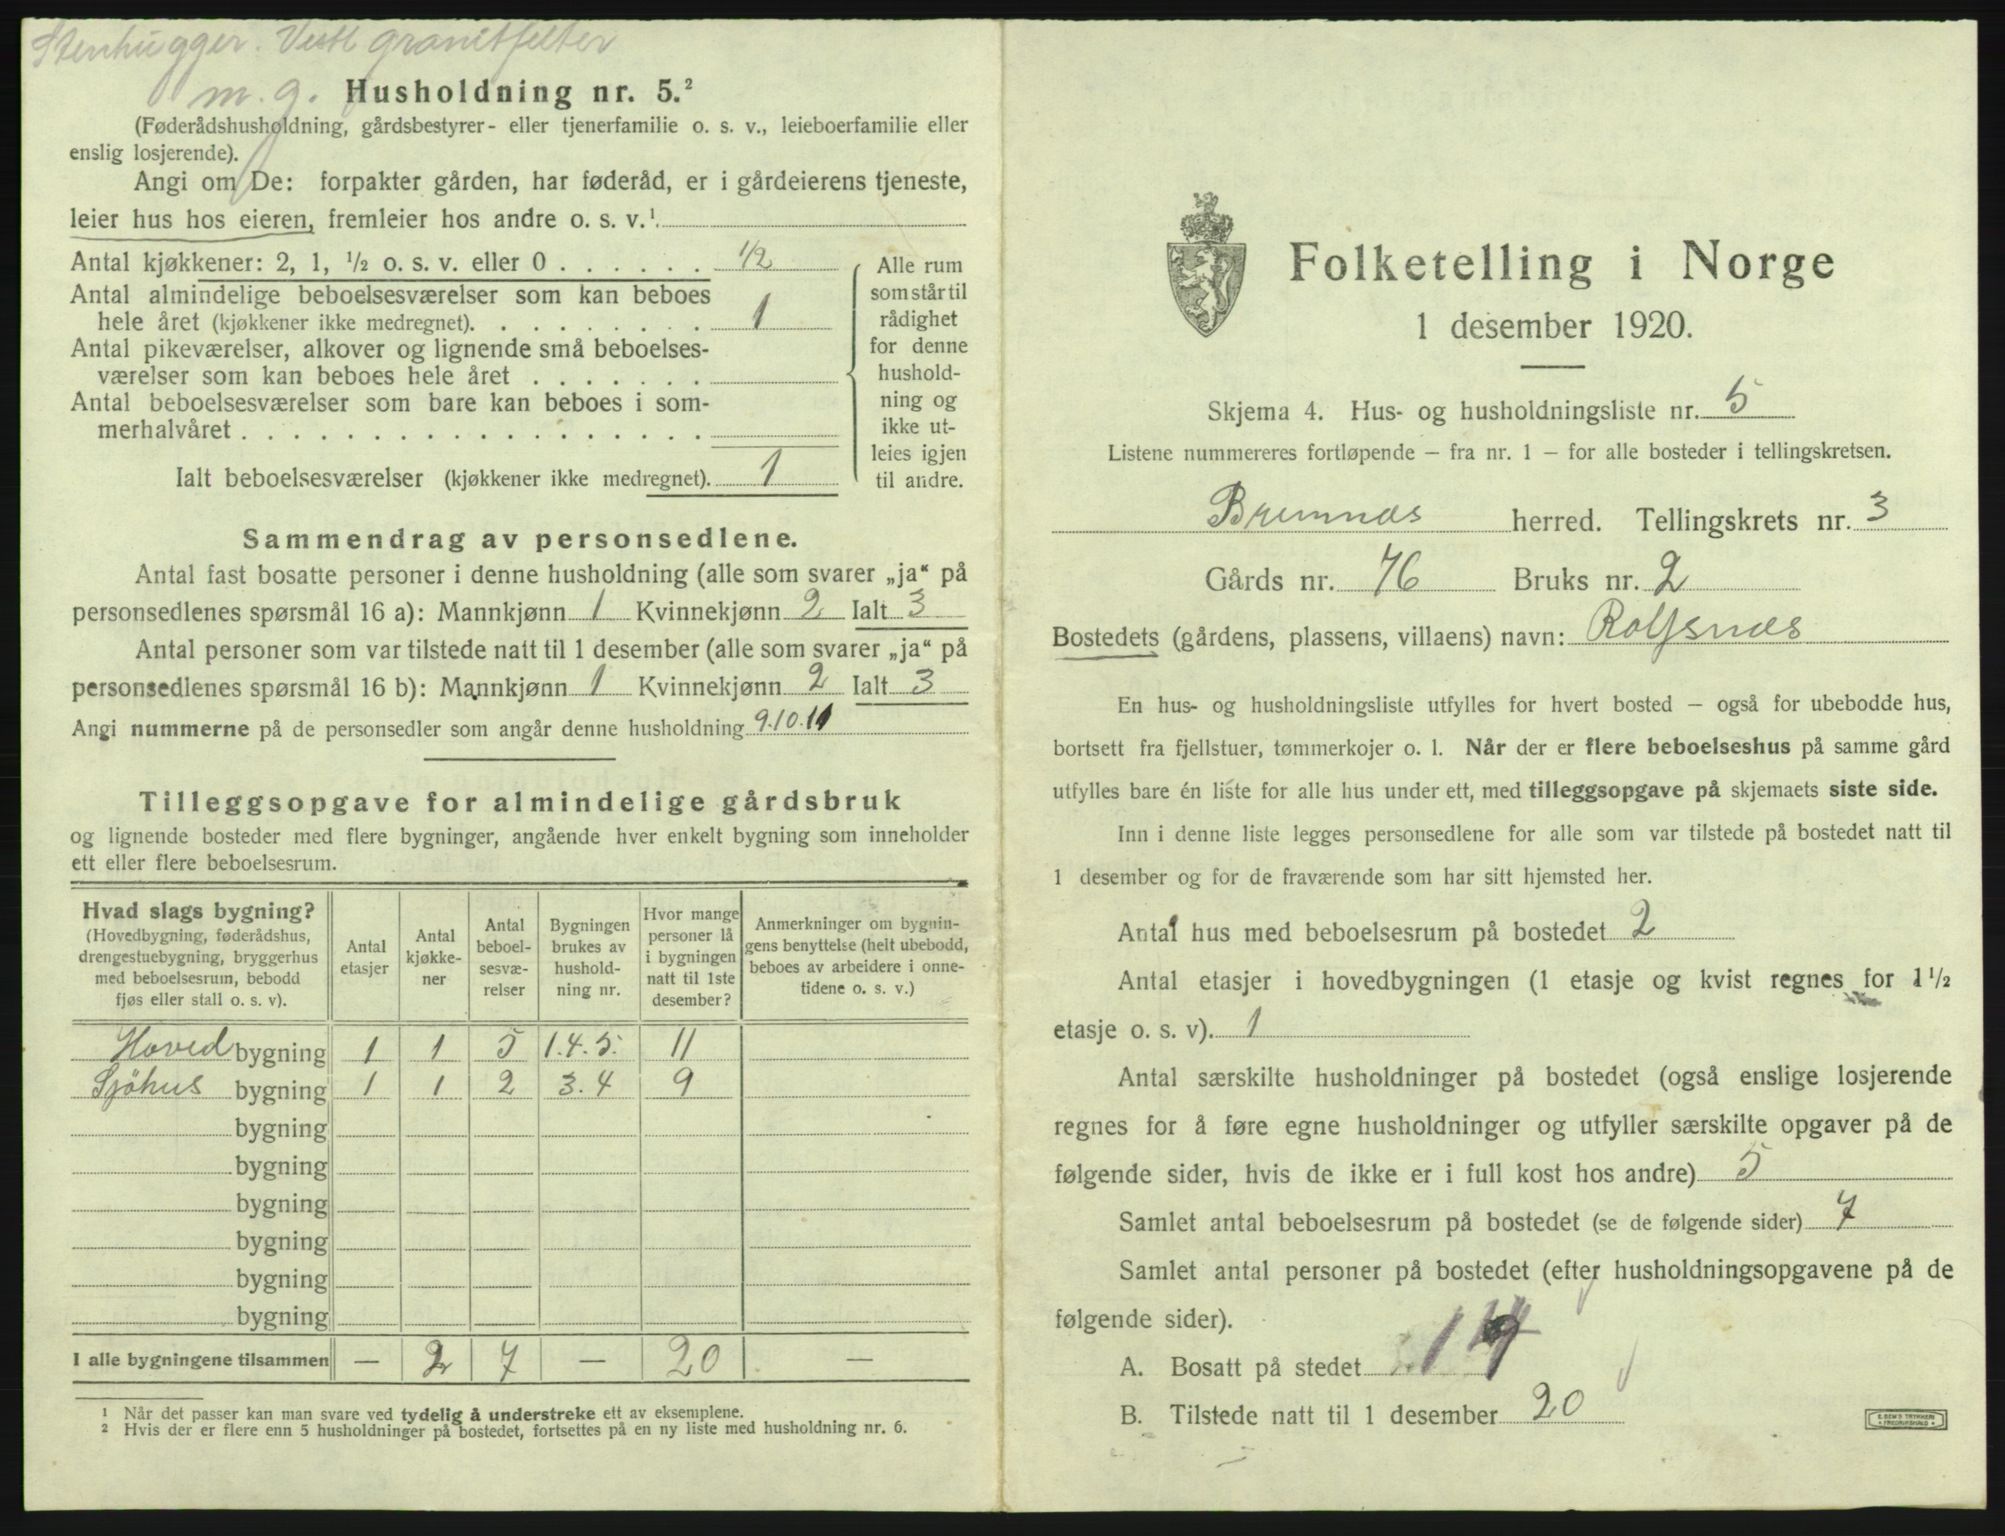 Stenhugger. Vestl granitfelter
m. g.
Husholdning nr. 5.²
(Føderådshusholdning, gårdsbestyrer- eller tjenerfamilie o. s. v., leieboerfamilie eller
enslig losjerende).
Angi om De: forpakter gården, har føderåd, er i gårdeierens tjeneste,
leier hus hos eieren, fremleier hos andre o. s. v.¹.
Antal kjøkkener: 2, 1, ½ o. s. v. eller 0 . . . . . . ½
Antal almindelige beboelsesværelser som kan beboes
hele året (kjøkkener ikke medregnet). . . . . . . . . 1
Antal pikeværelser, alkover og lignende små beboelses-
værelser som kan beboes hele året . . . . . . .
Antal beboelsesværelser som bare kan beboes i som-
merhalvåret . . . . . . . . . . . . . . . . . .
Ialt beboelsesværelser (kjøkkener ikke medregnet). 1
Alle rum
som står til
rådighet
for denne
hushold-
ning og
ikke ut-
leies igjen
til andre.
Sammendrag av personsedlene.
Antal fast bosatte personer i denne husholdning (alle som svarer „ja“ på
personsedlenes spørsmål 16 a): Mannkjønn 1 Kvinnekjønn 2 Ialt 3
Antal personer som var tilstede natt til 1 desember (alle som svarer „ja“ på
personsedlenes spørsmål 16 b): Mannkjønn 1 Kvinnekjønn 2 Ialt 3
Angi nummerne på de personsedler som angår denne husholdning 9.10.11
Tilleggsopgave for almindelige gårdsbruk
og lignende bosteder med flere bygninger, angående hver enkelt bygning som inneholder
ett eller flere beboelsesrum.
Hvad slags bygning?
(Hovedbygning, føderådshus,
drengestuebygning, bryggerhus
med beboelsesrum, bebodd
fjøs eller stall o. s. v).
Antal
etasjer
Antal
kjøkke-
ner
Antal
beboel-
sesvæ-
relser
Bygningen
brukes av
hushold-
ning nr.
Hvor mange
personer lå
i bygningen
natt til 1ste
desember?
Anmerkninger om bygnin-
gens benyttelse (helt ubebodd,
beboes av arbeidere i onne-
tidene o. s. v.)
Hoved bygning 1 1 5 1.4.5. 11
Sjöhus bygning 1 1 2 3.4 9
bygning
bygning
bygning
bygning
bygning
bygning
I alle bygningene tilsammen — 2 7 — 20 —
¹ Når det passer kan man svare ved tydelig å understreke ett av eksemplene.
² Hvis der er flere enn 5 husholdninger på bostedet, fortsettes på en ny liste med husholdning nr. 6.
Folketelling i Norge
1 desember 1920.
Skjema 4. Hus- og husholdningsliste nr. 5
Listene nummereres fortløpende – fra nr. 1 – for alle bosteder i tellingskretsen.
Bremnæs herred. Tellingskrets nr. 3
Gårds nr. 76 Bruks nr. 2
Bostedets (gårdens, plassens, villaens) navn: Rolfsnæs
En hus- og husholdningsliste utfylles for hvert bosted – også for ubebodde hus,
bortsett fra fjellstuer, tømmerkojer o. l. Når der er flere beboelseshus på samme gård
utfylles bare én liste for alle hus under ett, med tilleggsopgave på skjemaets siste side.
Inn i denne liste legges personsedlene for alle som var tilstede på bostedet natt til
1 desember og for de fraværende som har sitt hjemsted her.
Antal hus med beboelsesrum på bostedet 2
Antal etasjer i hovedbygningen (1 etasje og kvist regnes for 1½
etasje o. s. v). 1
Antal særskilte husholdninger på bostedet (også enslige losjerende
regnes for å føre egne husholdninger og utfyller særskilte opgaver på de
følgende sider, hvis de ikke er i full kost hos andre) 5
Samlet antal beboelsesrum på bostedet (se de følgende sider) 7
Samlet antal personer på bostedet (efter husholdningsopgavene på de
følgende sider).
A. Bosatt på stedet
B. Tilstede natt til 1 desember 20